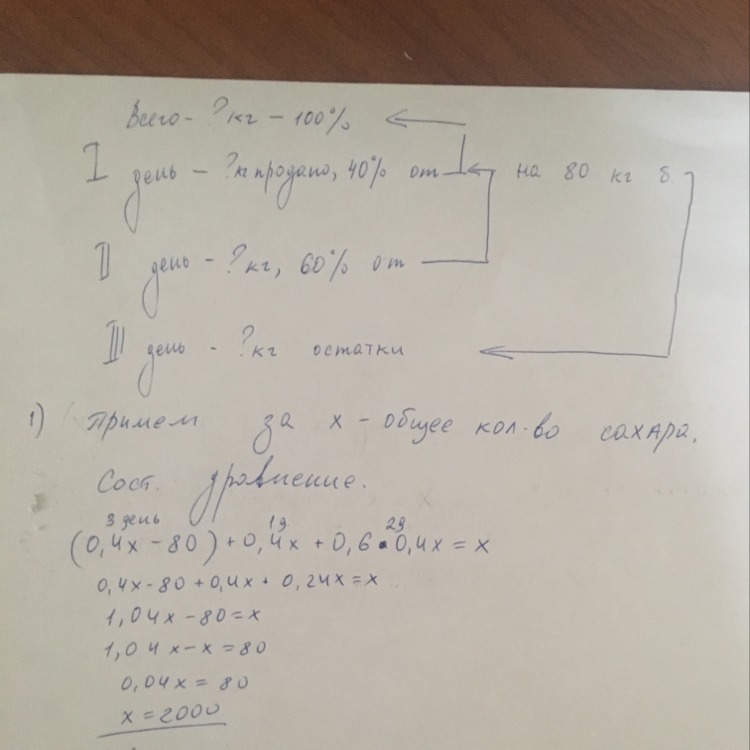 Всего - ? кг - 100%
I день - ? кг продано, 40% от на 80 кг б
II день - ? кг, 60% от
III день - ? кг остатки
1) Примем за x - общее кол-во сахара.
Сост. уравнение.
3 день 1д 2д
(0,4x - 80) + 0,4x + 0,6 • 0,4x = x
0,4x - 80 + 0,4x + 0,24x = x
1,04x - 80 = x
1,04x - x = 80
0,04x = 80
x = 2000